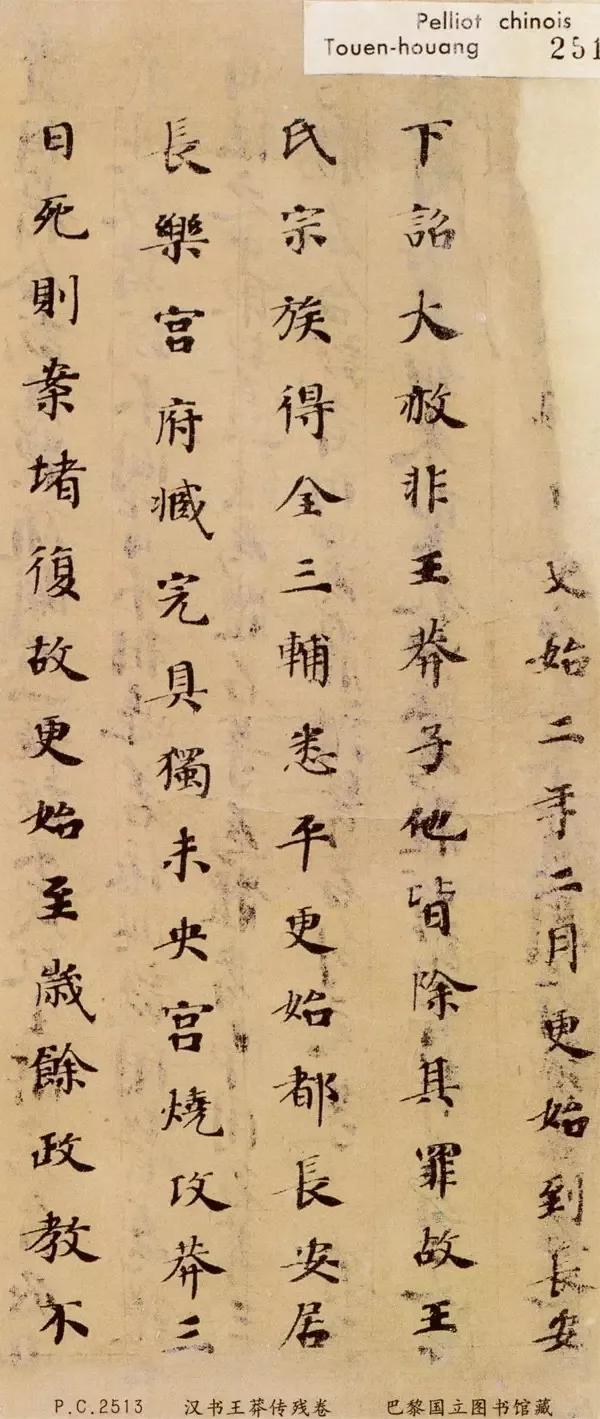 Pelliot chinois
Touen-houang 251
始二年二月更始到長安
下詔大赦非王莽子他皆除其罪故王
氏宗族得全三輔悉平更始都長安居
長樂宫府臧完具獨未央宫燒攻莽三
日死則案堵復故更始至歲餘政教不
P.C.2513 汉书王莽传残卷 巴黎国立图书馆藏